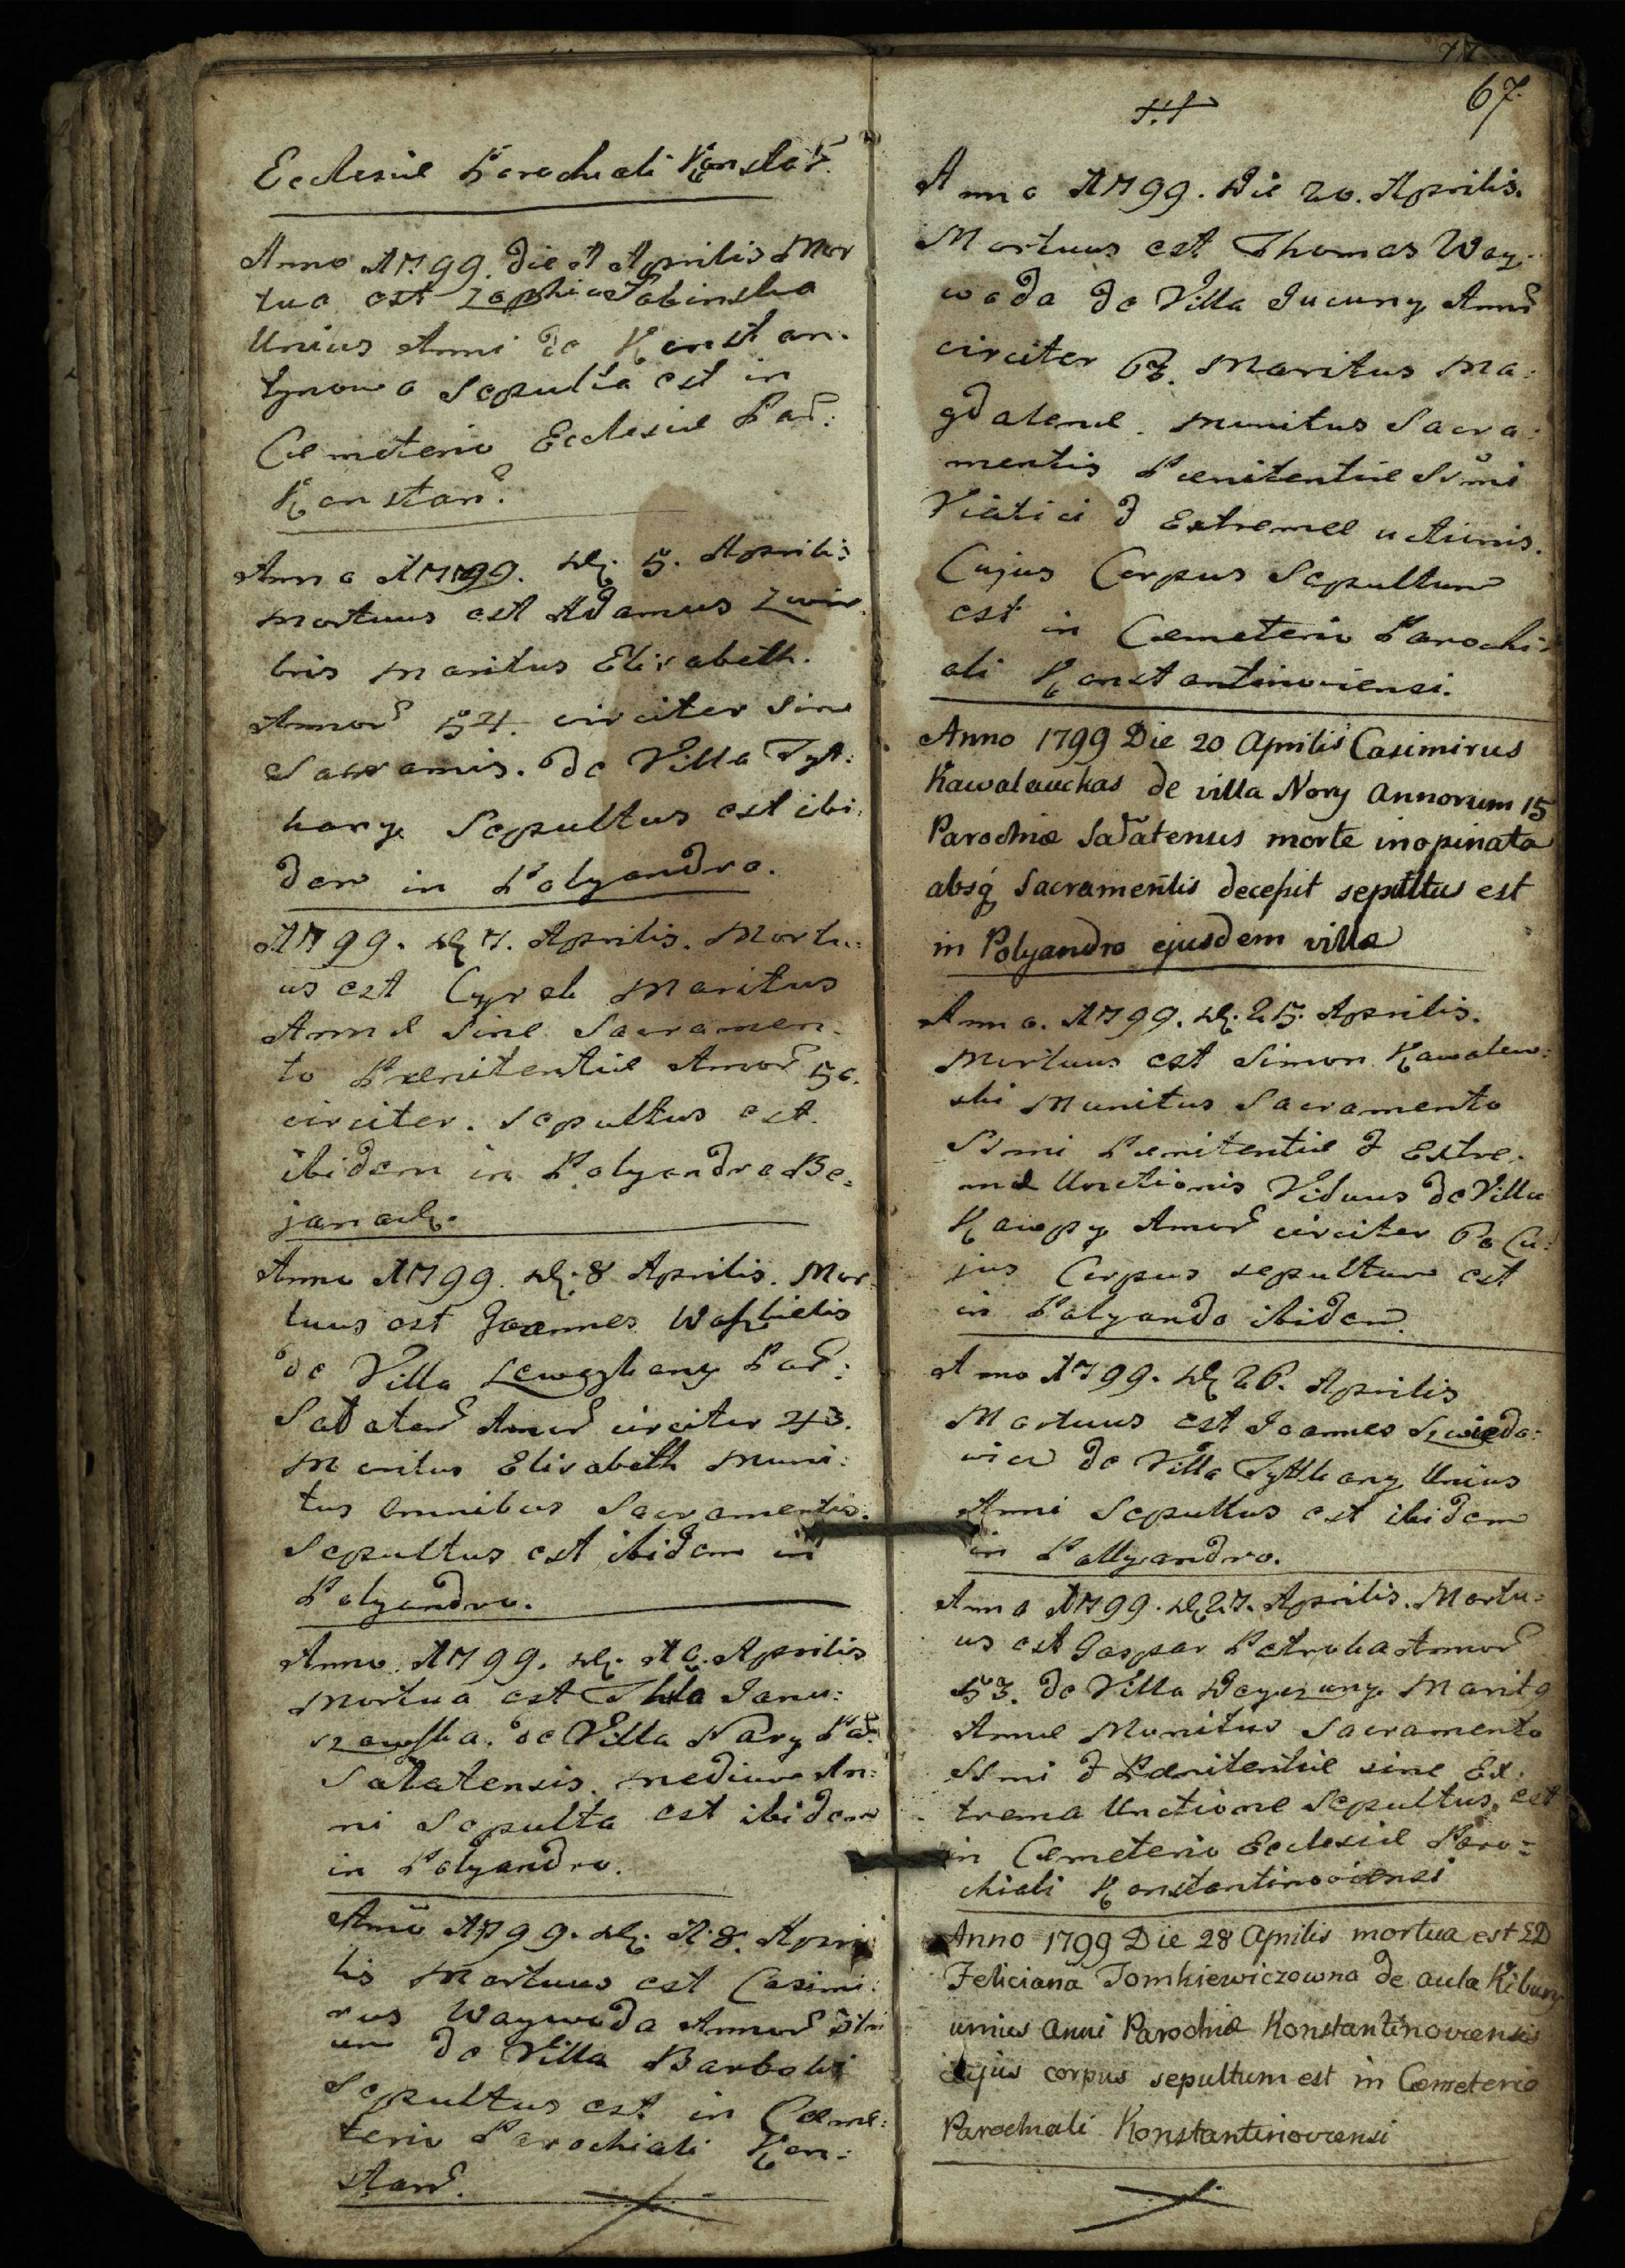 Ecclesiæ Parochiali Konstan̄.
Anno 1799. die 1 Aprilis Mor
tua est Zophia Sabinska
Unius Anni de Konstan-
tynowa Sepulta est in
Cæmeterio Ecclesiæ Par̄:
Konstan̄.
Anno 1799. D. 5. Aprilis
Mortuus est Adamus Zwir
blis Maritus Elisabeth.
Annor̄ 54. circiter Sine
Sacramis. de Villa Tyt:
kany Sepultus est ibi.
dem in Polyandro.
1799. D 7. Aprilis. Mortu:
us est Cyrek Maritus
Annæ Sine Sacramen-
to Pænitentiæ Annor̄ 50.
circiter. Sepultus est.
ibidem in Polyandro Be:
janach.
Anno 1799. D. 8 Aprilis. Mor:
tuus est Joannes
de Villa Par̄:
Sadaten̄ Annor̄ circiter 43.
Maritus Elisabeth Muni:
tus omnibus Sacramentis.
Sepultus est ibidem in
Polyandro.
Anno. 1799. D. 10. Aprilis
Mortua est Thecla Janu:
szewska. de Villa Nary Par̄:
Sadatensis. medium An:
ni Sepulta est ibidem
in Polyandro.
Anno 1799. D. 18. Apri
lis Mortuus est Casimi:
rus Waywoda Annor̄
um de Villa Barboki
Sepultus est in Cæme:
terio Parochiali Kon:
stan̄.
67.
Anno 1799. Die 20. Aprilis.
Mortuus est Thomas Way:
woda de Villa Jucuny Ann̄
circiter 63. Maritus Ma:
gdalenæ. Munitus Sacra:
mentis Pænitentiæ SSmi
Viatici & Extremæ uctionis.
Cujus Corpus Sepultum
est in Cæmeterio Parochi:
ali Konstantinoviensi.
Anno 1799 Die 20 Aprilis Casimirus
Kawalauckas de villa Nory Annorum 15
Parochiæ Sadatenus morte inopinata
absq́ Sacramentis decessit sepultus est
in Polyandro ejusdem villæ
Anno. 1799. D. 25. Aprilis.
Mortuus est Simon Kawalew:
ski Munitus Sacramento
SSmi Pænitentiæ & Extre:
mæ Unctionis Viduus de Villa
Kawpy Annor̄ circiter 60 Cu:
jus Corpus sepultum est
in Polyando ibidem.
Anno 1799. D 26. Aprilis
Mortuus est Joannes Szwieda:
wicz de Villa Tyttkany Unius
Anni Sepultus est ibidem
in Pollyandro.
Anno 1799. D 27. Aprilis. Mortu:
us est Gaspar Petryka Annor̄
53. de Villa Marit9
Annæ Munitus Sacramento
SSmi & Pænitentiæ sine Ex:
trema Unctione Sepultus est
in Cæmeterio Ecclesiæ Paro:
chiali Konstantinoviensi
Anno 1799 Die 28 Aprilis mortua est
Feliciana Tomkiewiczowna de aula Kibury
unius anni Parochiæ Konstantinoviensis
cujus corpus sepultum est in Cæmeterio
Parochiali Konstantinoviensi